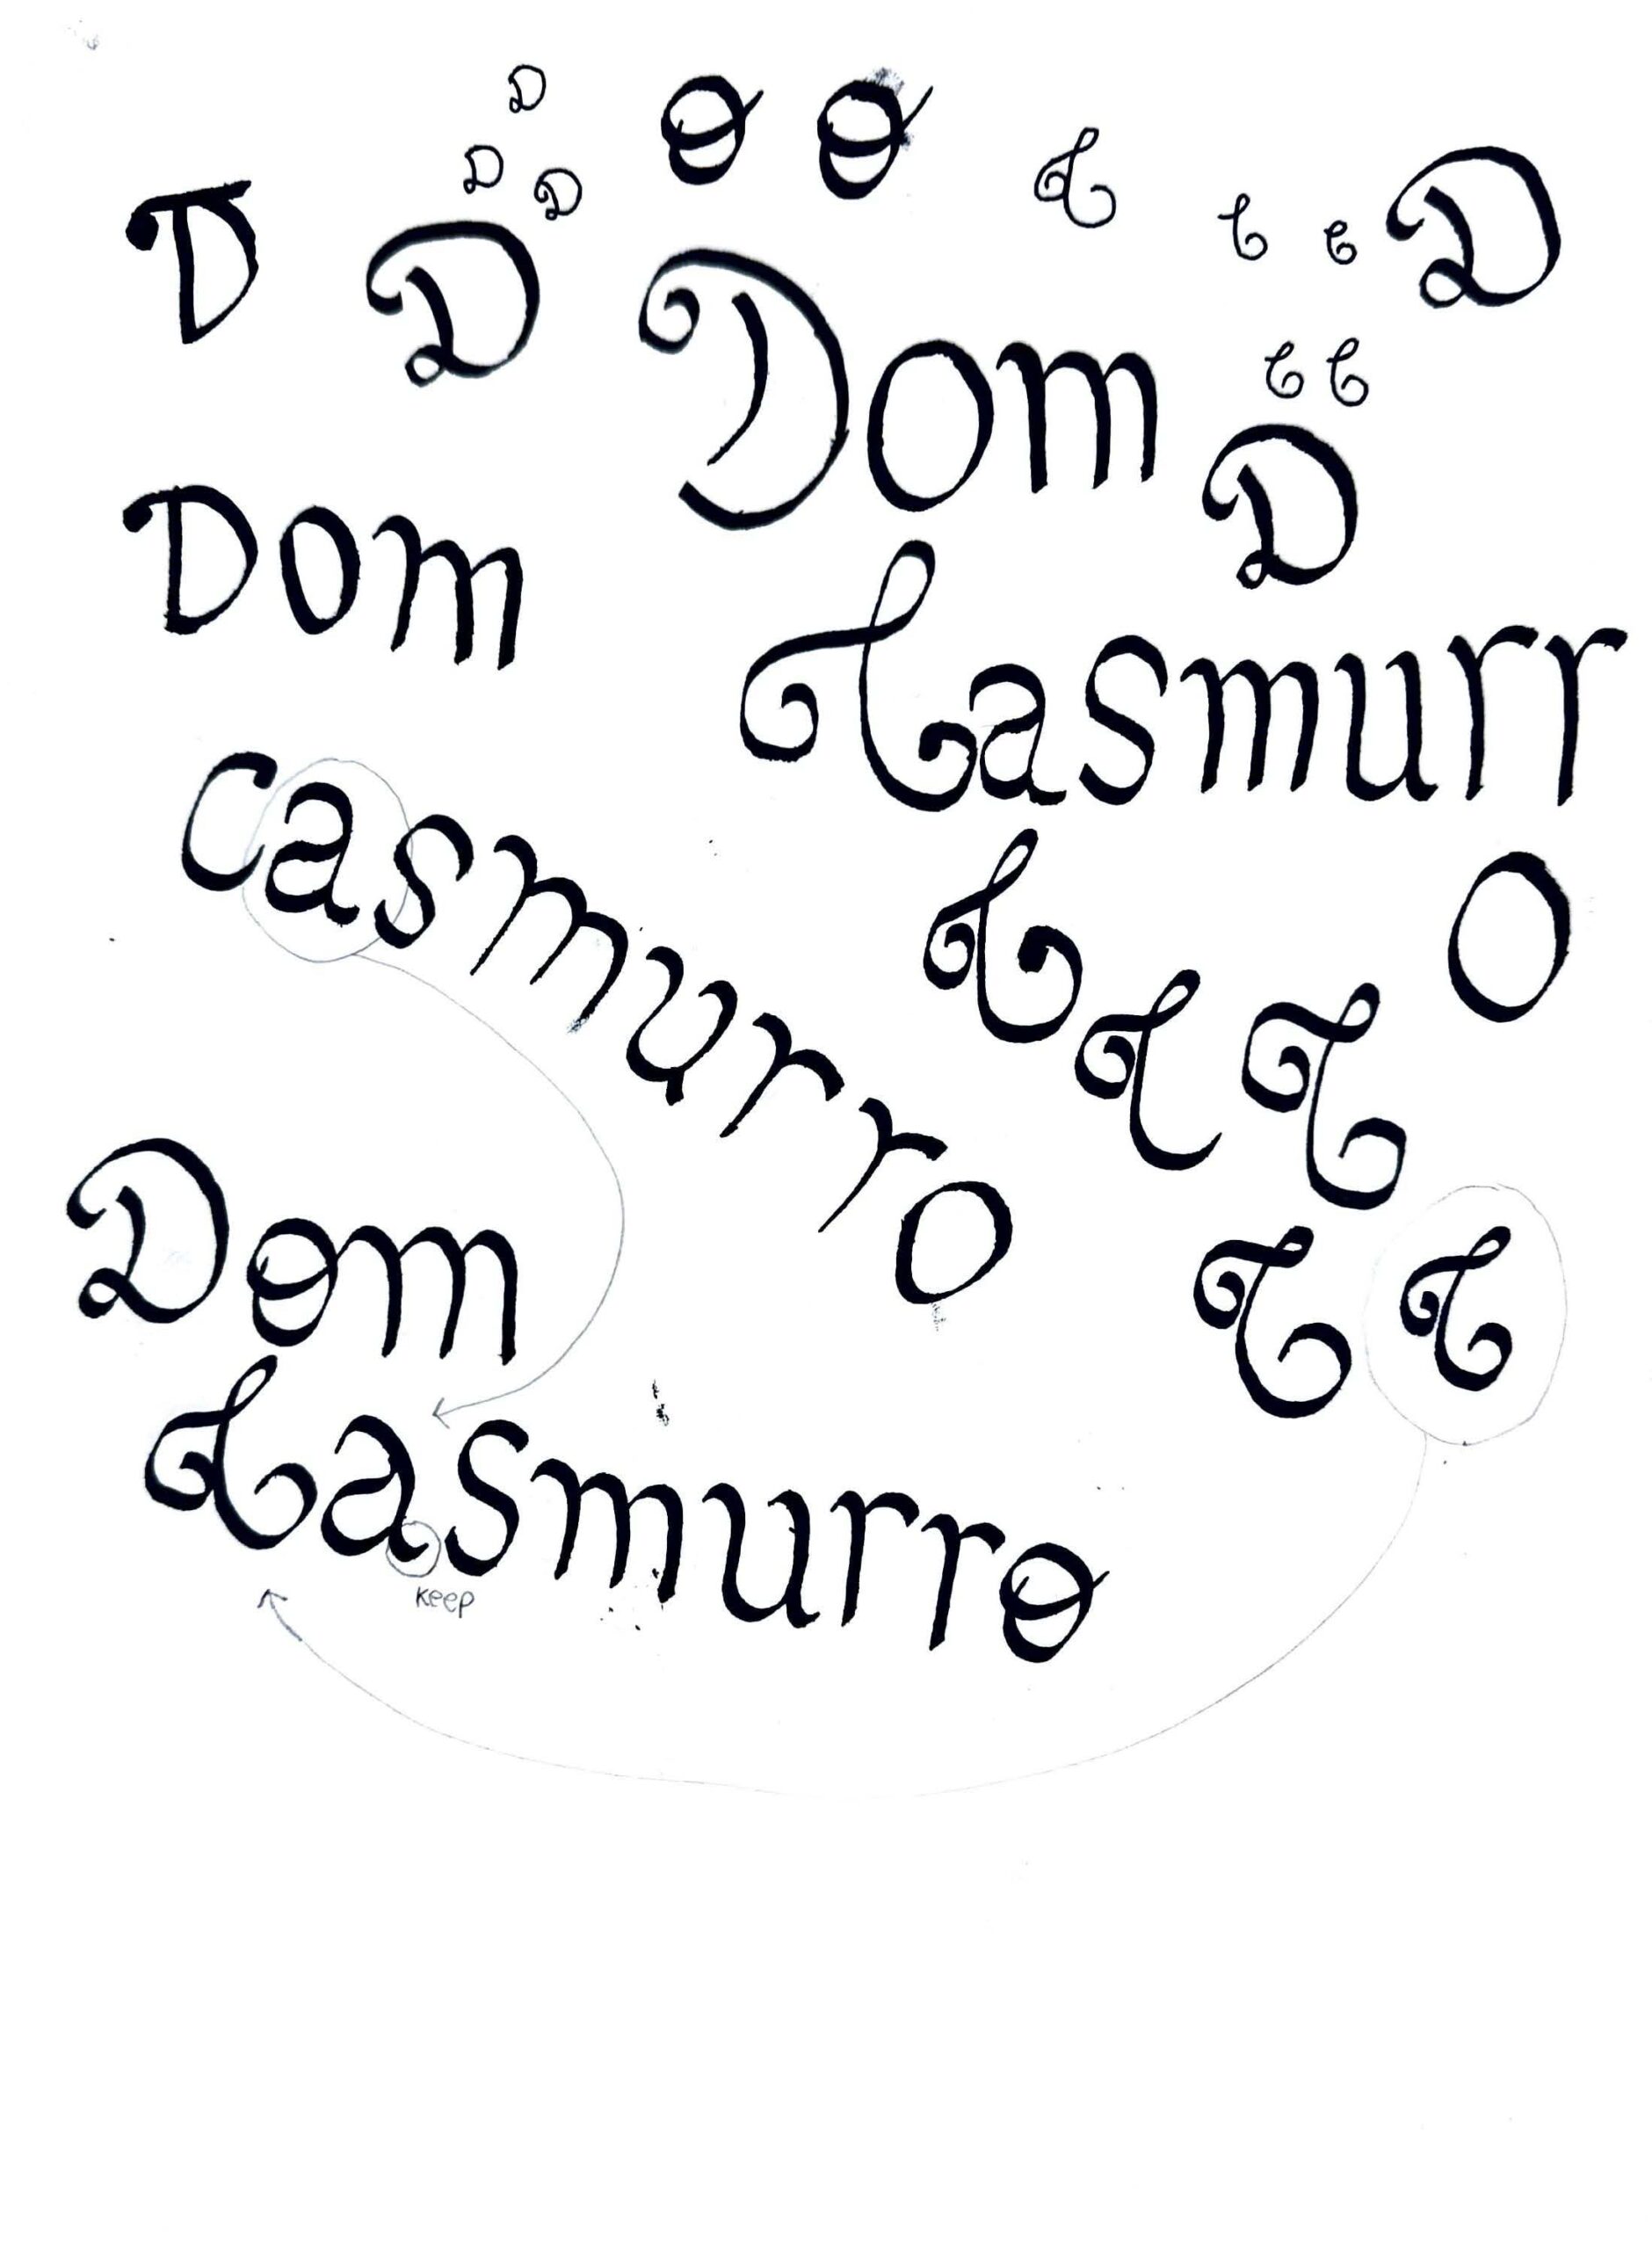 D
D D
e e C
C e D
D D
Dom
C C
D
Dom
Casmurr
o
casmurro
C
C C
C C
Dom
Casmurro
keep